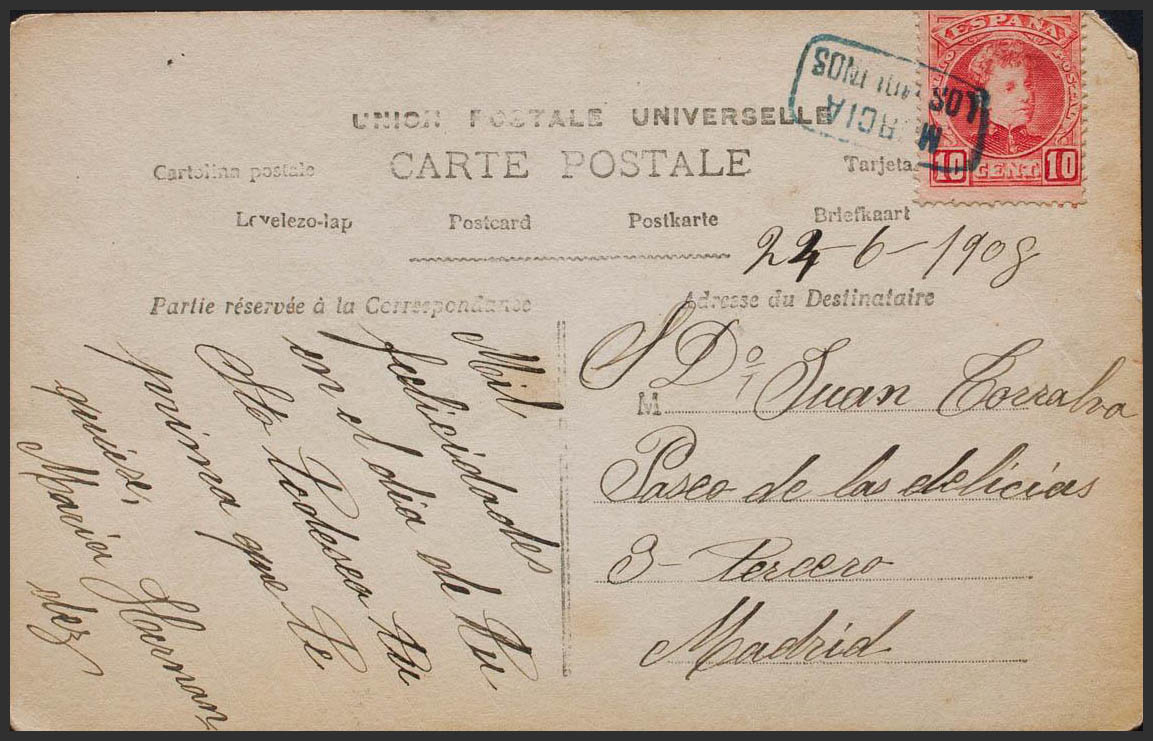 ESPAÑA
10 CENT. 10
MURCIA
LOS
UNION POSTALE UNIVERSELLE
CARTE POSTALE
Cartolina postale
Tarjeta
Levelezo-lap
Postcard
Postkarte
Briefkaart
22-6-1908
Partie réservée à la Correspondance
Adresse du Destinataire
Mil
felicidades
en el dia de tu
Sto Todesea tu
prima que te
quiere,
Maria Hernan
dez
S Dn Juan Torralva
M
Paseo de las delicias
3- tercero
Madrid